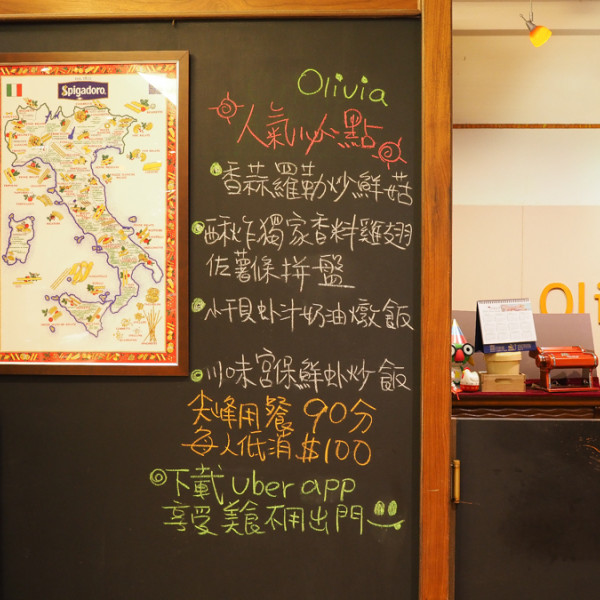 Spigadoro
Olivia
人氣必點
香蒜羅勒炒鮮菇
酥炸獨家香料雞翅
佐薯條拼盤
小干貝蚵汁奶油燉飯
川味宮保鮮蚵炒飯
尖峰用餐 90分
每人低消 $100
下載 uber app
享受美食不用出門
OLi